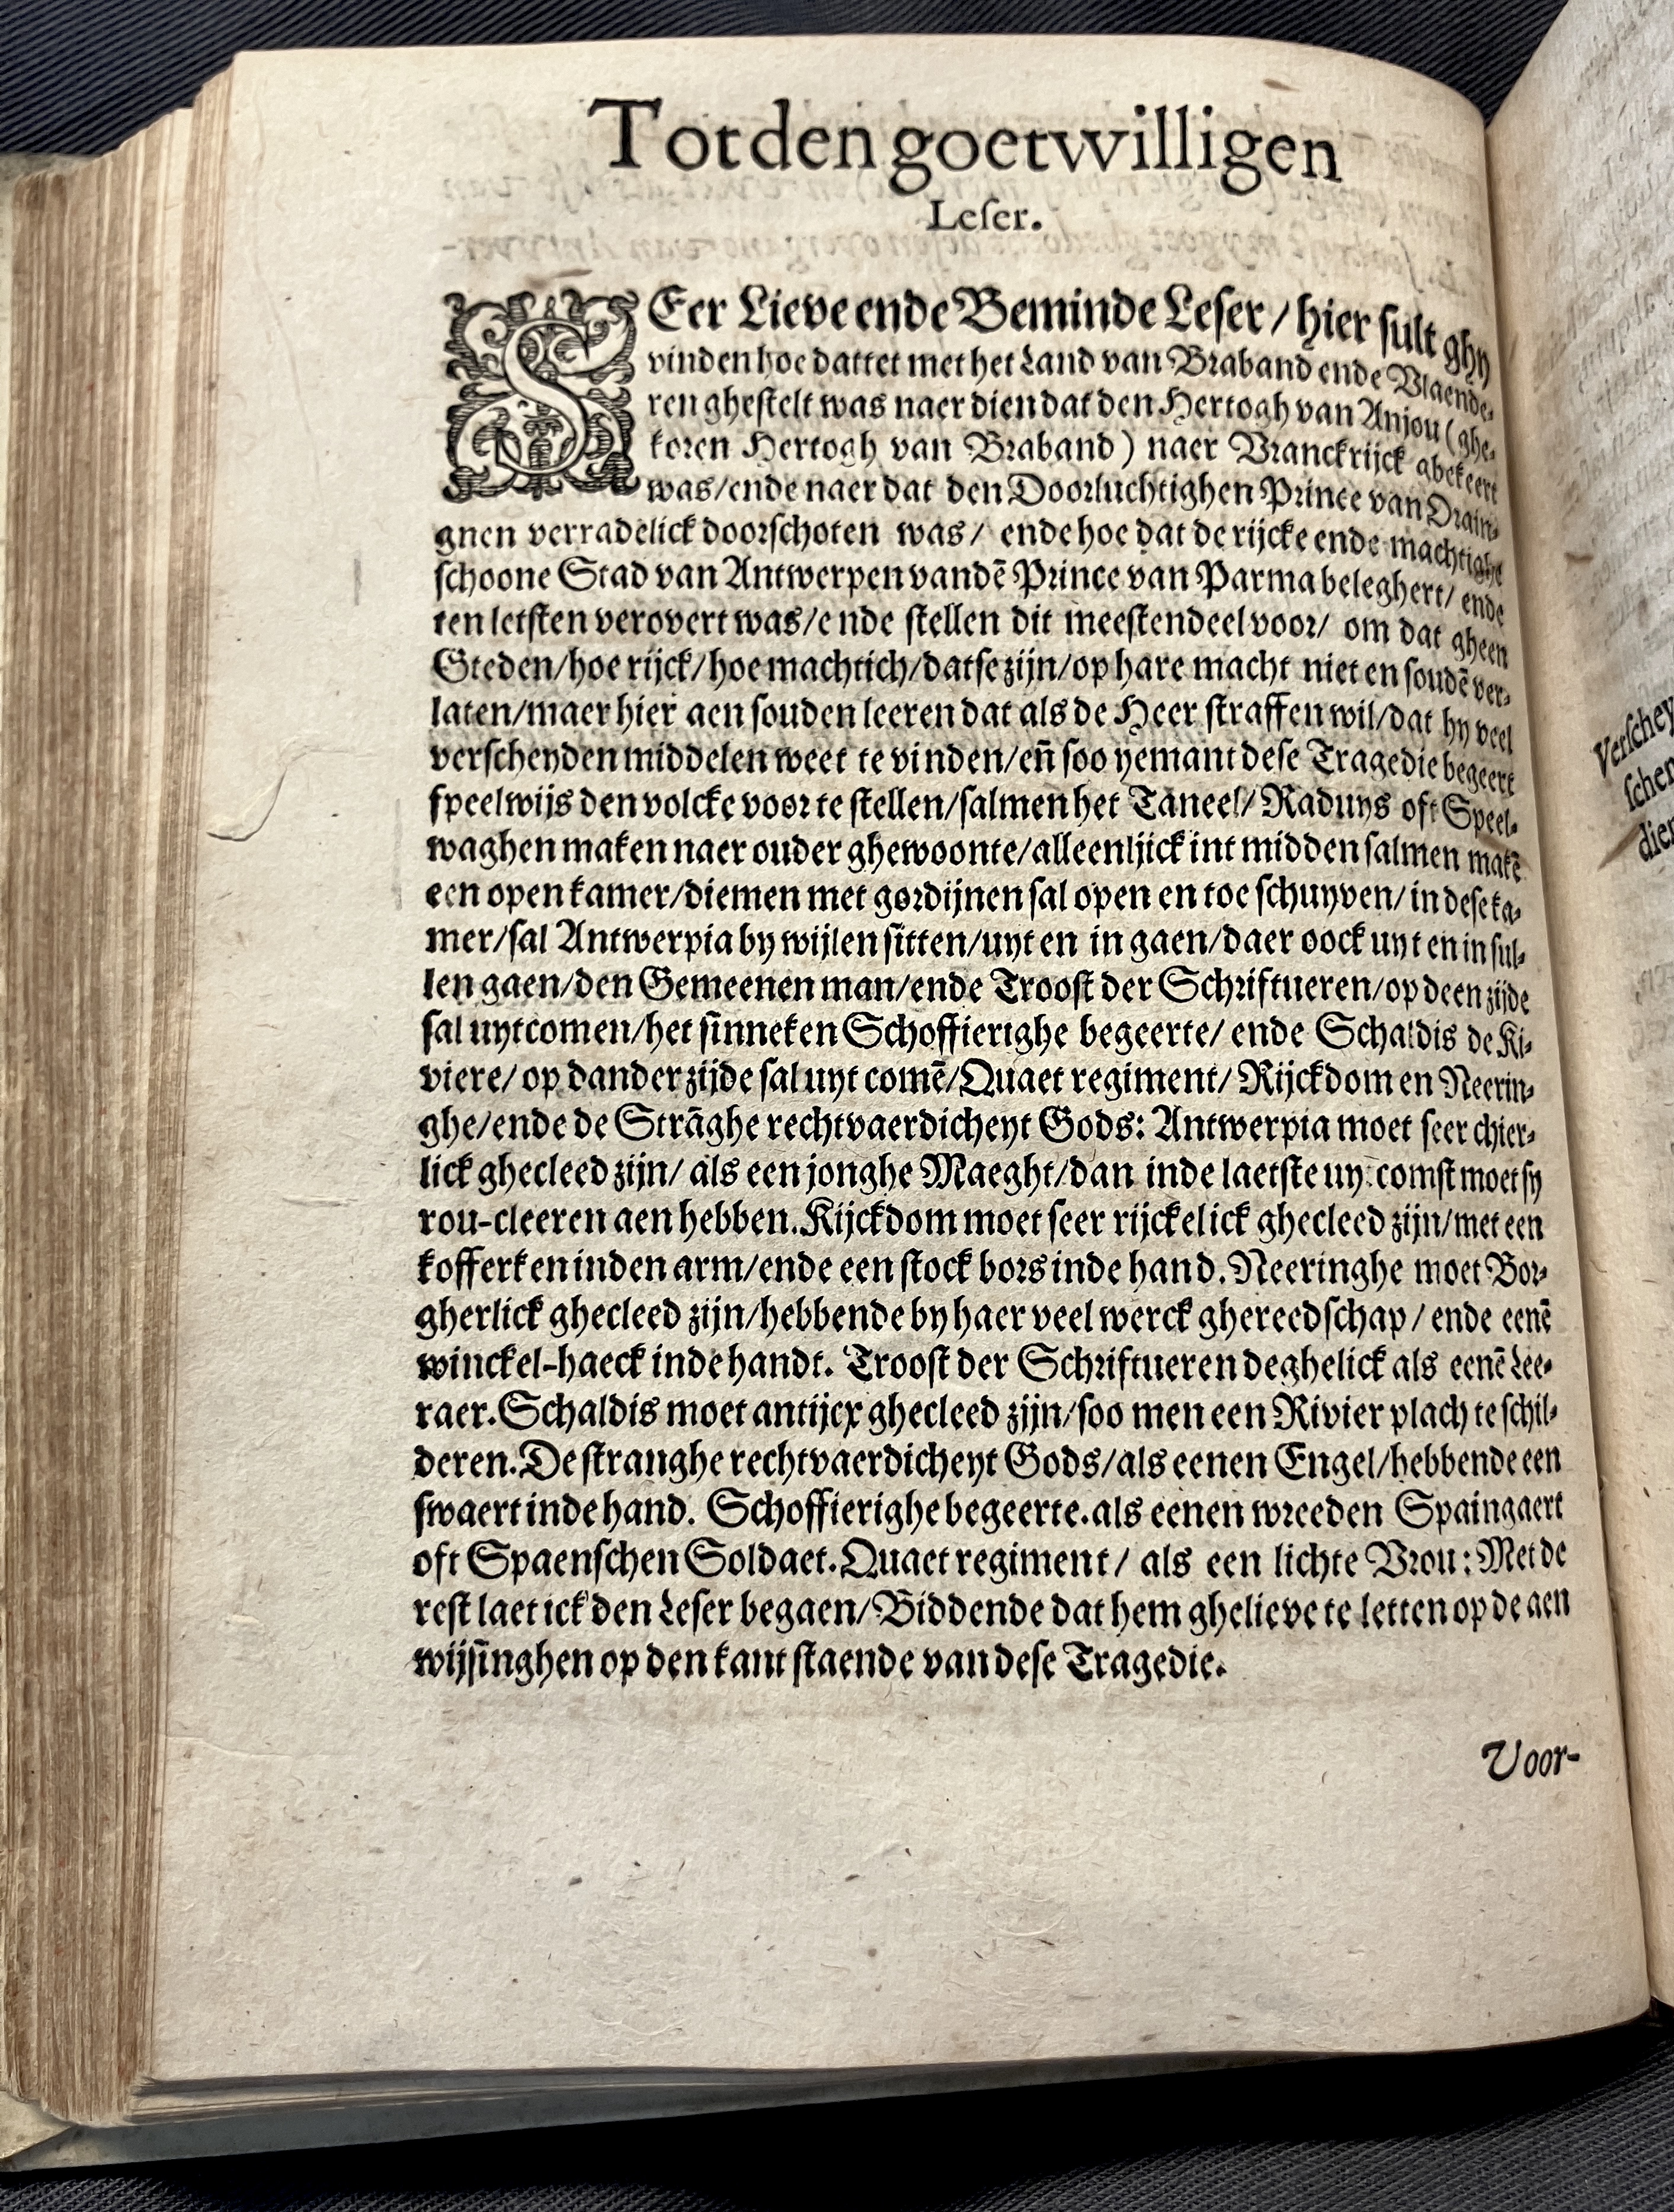 Tot den goetwilligen
Leser.
SEer Lieve ende Beminde Leser / hier sult ghy
vinden hoe dattet met het Land van Braband ende Vlaende-
ren ghestelt was naer dien dat den Hertogh van Anjou (ghe-
koren Hertogh van Braband) naer Vranckrijck abekeert
was/ende naer dat den Doorluchtighen Prince van Orain-
gnen verradelick doorschoten was/ ende hoe dat de rijcke ende machtighe
schoone Stad van Antwerpen vandē Prince van Parma beleghert/ ende
ten letsten verovert was/ende stellen dit meestendeel voor/ om dat gheen
Steden/hoe rijck/hoe machtich/datse zijn/op hare macht niet en soudē ver-
laten/maer hier aen souden leeren dat als de Heer straffen wil/dat hy veel
verscheyden middelen weet te vinden/en̄ soo yemant dese Tragedie begeert
speelwijs den volcke voor te stellen/salmen het Taneel/ Raduys oft Speel-
waghen maken naer ouder ghewoonte/alleenlijck int midden salmen makē
een open kamer/diemen met gordijnen sal open en toe schuyven/ in dese ka-
mer/sal Antwerpia by wijlen sitten/uyt en in gaen/daer oock uyt en in sul-
len gaen/den Gemeenen man/ende Troost der Schriftueren/op deen zijde
sal uytcomen/het sinneken Schoffierighe begeerte/ ende Schaldis de Ri-
viere/ op dander zijde sal uyt comē/Quaet regiment/ Rijckdom en Neerin-
ghe/ende de Strāghe rechtvaerdicheyt Gods: Antwerpia moet seer chier-
lick ghecleed zijn/ als een jonghe Maeght/dan inde laetste uytcomst moet sy
rou-cleeren aen hebben. Rijckdom moet seer rijckelick ghecleed zijn/met een
kofferken inden arm/ende een stock bors inde hand. Neeringhe moet Bor-
gherlick ghecleed zijn/hebbende by haer veel werck ghereedschap / ende eenē
winckel-haeck inde handt. Troost der Schriftueren deghelick als eenē Lee-
raer. Schaldis moet antijcx ghecleed zijn/soo men een Rivier plach te schil-
deren. De stranghe rechtvaerdicheyt Gods/als eenen Engel/hebbende een
swaert inde hand. Schoffierighe begeerte. als eenen wreeden Spaingaert
oft Spaenschen Soldaet. Quaet regiment/ als een lichte Vrou: Met de
rest laet ick den Leser begaen/Biddende dat hem ghelieve te letten op de aen
wijsinghen op den kant staende van dese Tragedie.
Voor-
Verschey
schen
dien